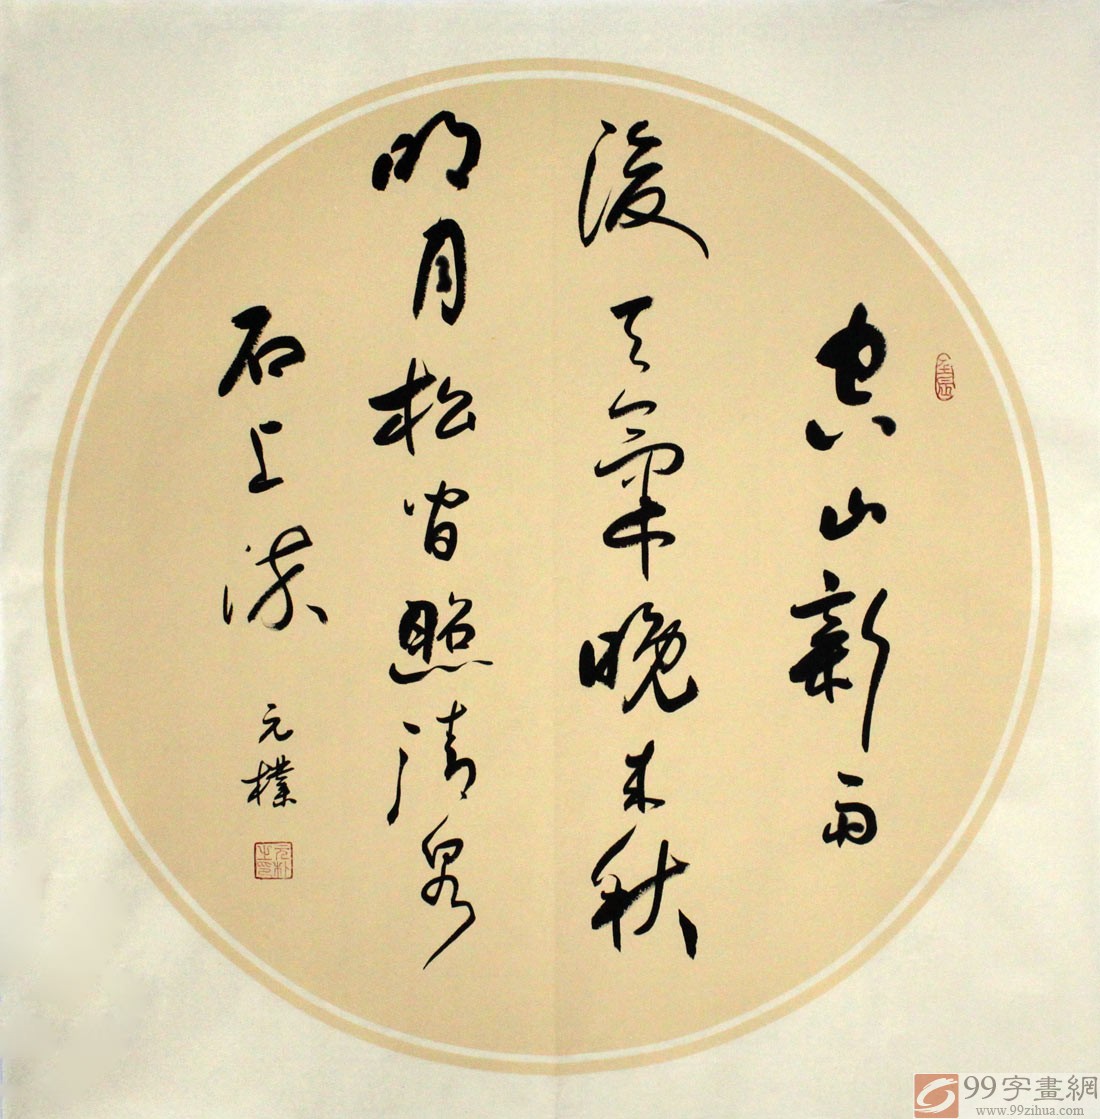 空山新雨
後天氣晚来秋
明月松间照清泉
石上流
元樸
元朴之印
99字畫網
www.99zihua.com